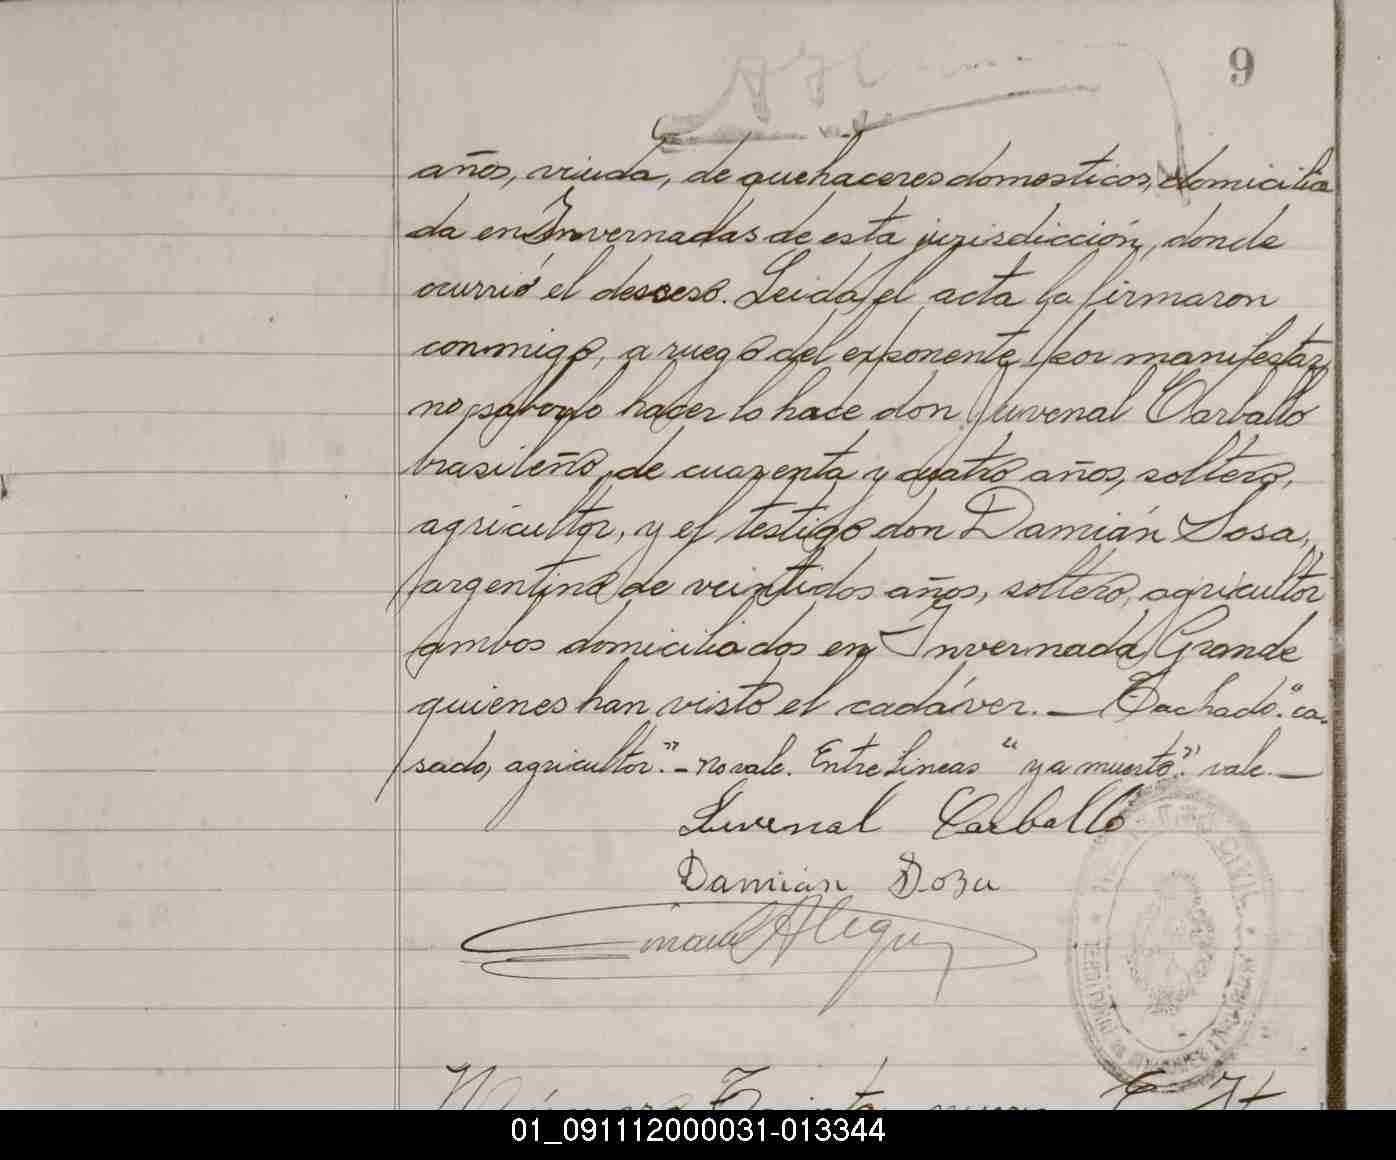 9
años, viuda, de quehaceres domesticos, domicilia
da en Invernadas de esta jurisdicción, donde
ocurrió el desceso. Leida el acta la firmaron
conmigo, a ruego del exponente por manifestar
no saberlo hacer lo hace don Juvenal Carballo
brasileño, de cuarenta y cuatro años, soltero,
agricultor, y el testigo don Damián Sosa,
argentino de veintidos años, soltero, agricultor
ambos domiciliados en Invernada Grande
quienes han visto el cadáver. — Tachado: "ca-
sado, agricultor." - no vale. Entre lineas "ya muerto". vale. —
Luvenal Carballo
Damián Soza
Alegre
CIVIL
Número Treinta
01_091112000031-013344